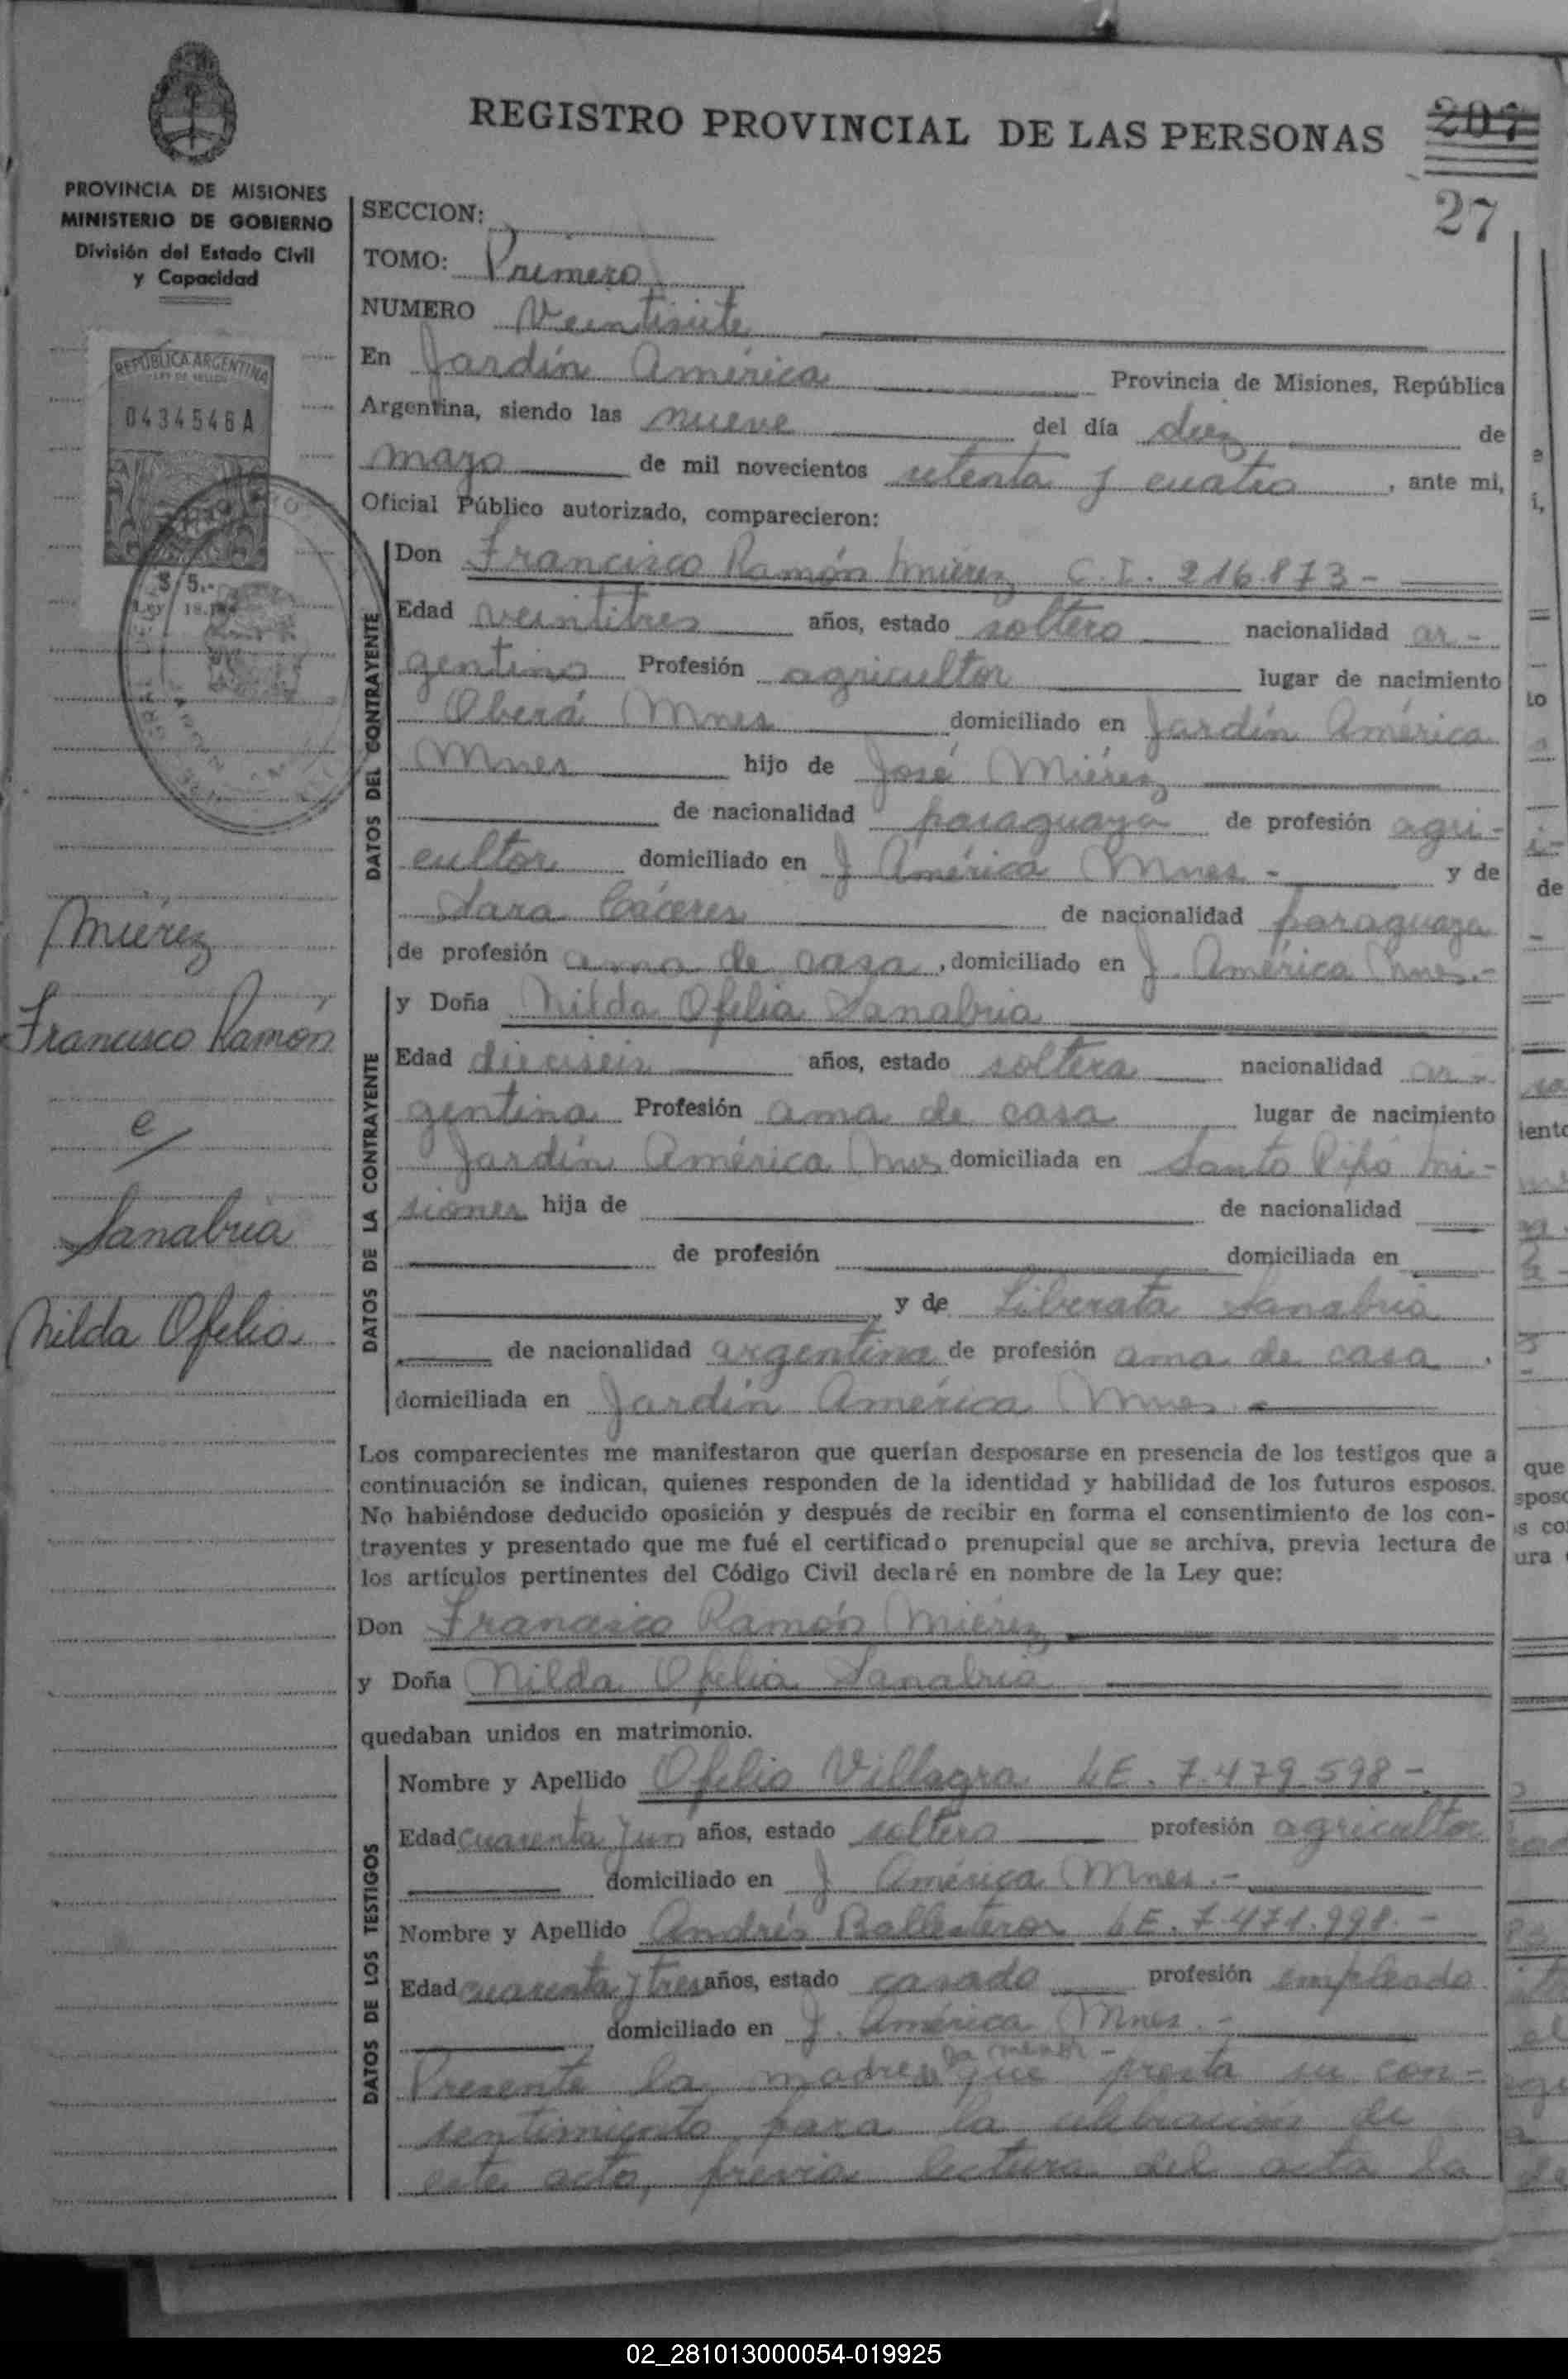 REGISTRO PROVINCIAL DE LAS PERSONAS
207
27
PROVINCIA DE MISIONES
MINISTERIO DE GOBIERNO
División del Estado Civil
y Capacidad
REPÚBLICA ARGENTINA
LEY DE SELLOS
0434546A
$ 5.-
Ley 18.
Miérez
Francisco Ramón
e/
Sanabria
Nilda Ofelia
SECCION:
TOMO: Primero
NUMERO Veintisiete
En Jardín América Provincia de Misiones, República
Argentina, siendo las nueve del día diez de
mayo de mil novecientos setenta y cuatro, ante mi,
Oficial Público autorizado, comparecieron:
DATOS DEL CONTRAYENTE
Don Francisco Ramón Miérez C.I. 216.873-
Edad veintitres años, estado soltero nacionalidad ar-
gentino Profesión agricultor lugar de nacimiento
Oberá Mnes domiciliado en Jardín América
Mnes hijo de José Miérez
de nacionalidad paraguaya de profesión agri-
cultor domiciliado en J América Mnes - y de
Sara Cáceres de nacionalidad paraguaya
de profesión ama de casa, domiciliado en J. América Mnes.-
DATOS DE LA CONTRAYENTE
y Doña Nilda Ofelia Sanabria
Edad dieciseis años, estado soltera nacionalidad ar-
gentina Profesión ama de casa lugar de nacimiento
Jardín América Mnes domiciliada en Santo Pipó Mi-
siones hija de de nacionalidad
de profesión domiciliada en
y de Liberata Sanabria
de nacionalidad argentina de profesión ama de casa,
domiciliada en Jardín América Mnes
Los comparecientes me manifestaron que querían desposarse en presencia de los testigos que a
continuación se indican, quienes responden de la identidad y habilidad de los futuros esposos.
No habiéndose deducido oposición y después de recibir en forma el consentimiento de los con-
trayentes y presentado que me fué el certificado prenupcial que se archiva, previa lectura de
los artículos pertinentes del Código Civil declaré en nombre de la Ley que:
Don Francisco Ramón Miérez
y Doña Nilda Ofelia Sanabria
quedaban unidos en matrimonio.
DATOS DE LOS TESTIGOS
Nombre y Apellido Ofelio Villagra LE. 7.479.598-
Edad cuarenta y un años, estado soltero profesión agricultor
domiciliado en J América Mnes.-
Nombre y Apellido Andrés Ballesteros LE. 7.471.998.-
Edad cuarenta y tres años, estado casado profesión empleado
domiciliado en J. América Mnes.-
la menor-
Presente la madre de que presta su con-
sentimiento para la celebración de
este acto, previa lectura del acta la
02_281013000054-019925